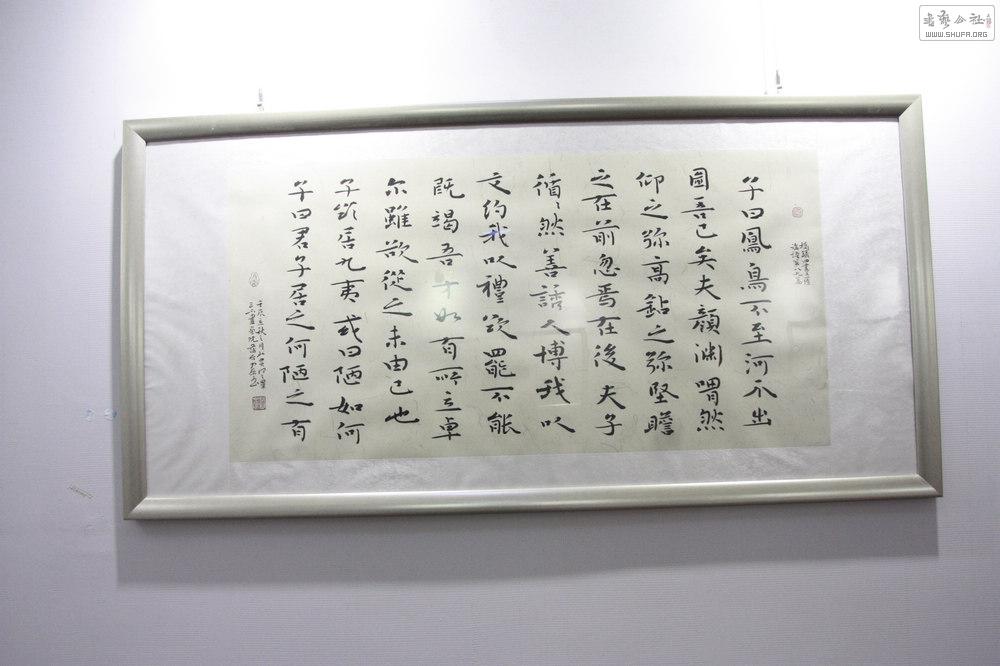 子曰鳳鳥不至河不出
圖吾已矣夫顏淵喟然
仰之弥高鉆之弥堅瞻
之在前忽焉在後夫子
循〻然善誘人博我以
文約我以禮欲罷不能
既竭吾才如有所立卓
尔雖欲從之末由已也
子欲居九夷或曰陋如何
子曰君子居之何陋之有
书艺公社
WWW.SHUFA.ORG